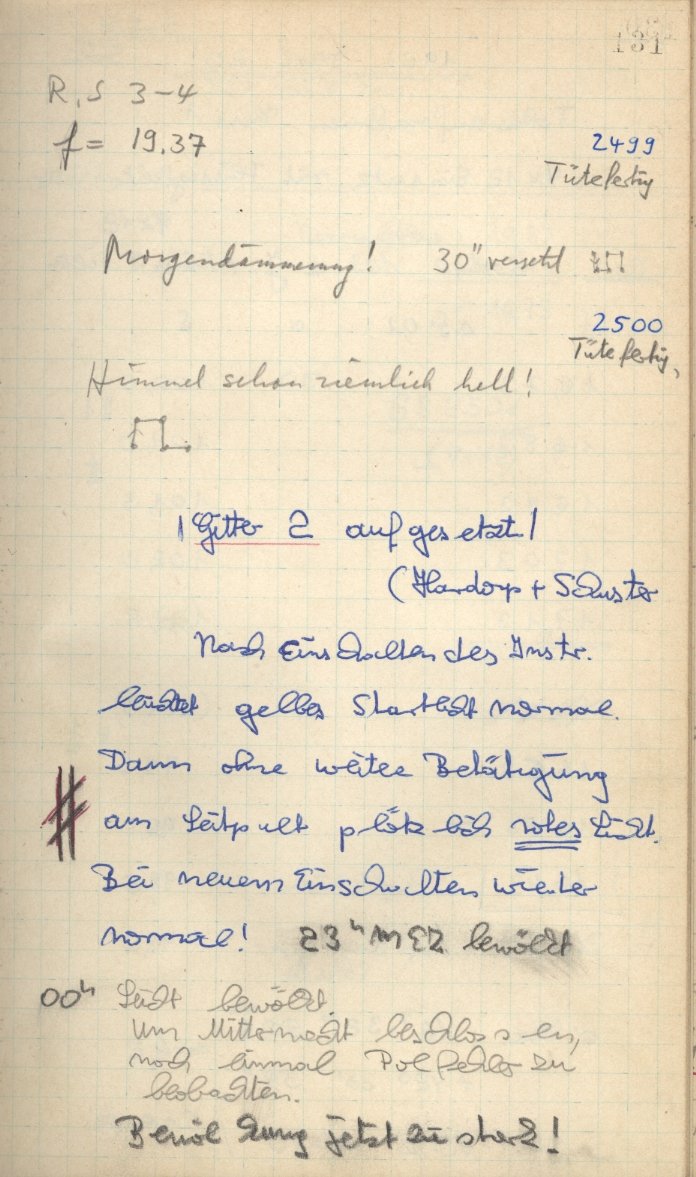 181
R, S 3-4
f = 19.37
2499
Tüte fertig
Morgendämmerung! 30" versetzt
2500
Tüte fertig,
Himmel schon ziemlich hell!
! Gitter 2 aufgesetzt!
(Hardorp + Schuster
Nach Einschalten des Instr.
leuchtet gelbes Startlicht normal.
Dann ohne weitere Betätigung
am Leitpult plötzlich rotes Licht.
Bei neuem Einschalten wieder
normal! 23h MEZ bewölkt
00h Leicht bewölkt.
Um Mitternacht beschlossen,
noch einmal Polfehler zu
beobachten.
Bewölkung jetzt zu stark!